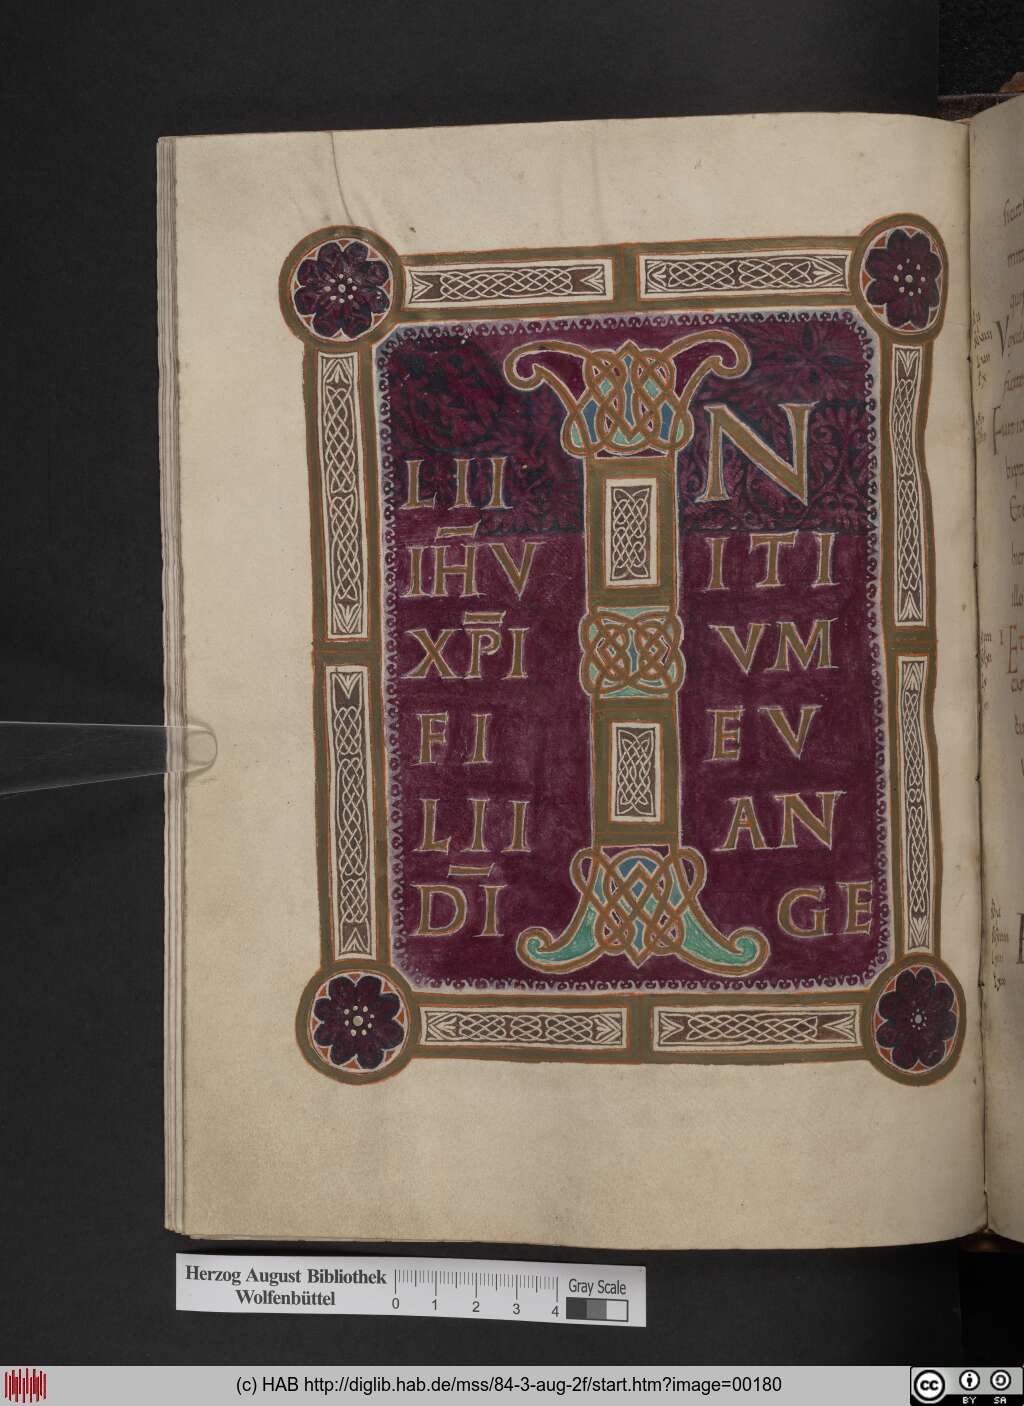 I
N
ITI
VM
EV
AN
GE
LII
IH̅V
XP̅I
FI
LII
D̅I
Herzog August Bibliothek
Wolfenbüttel
0 1 2 3 4
Gray Scale
(c) HAB http://diglib.hab.de/mss/84-3-aug-2f/start.htm?image=00180
cc BY SA